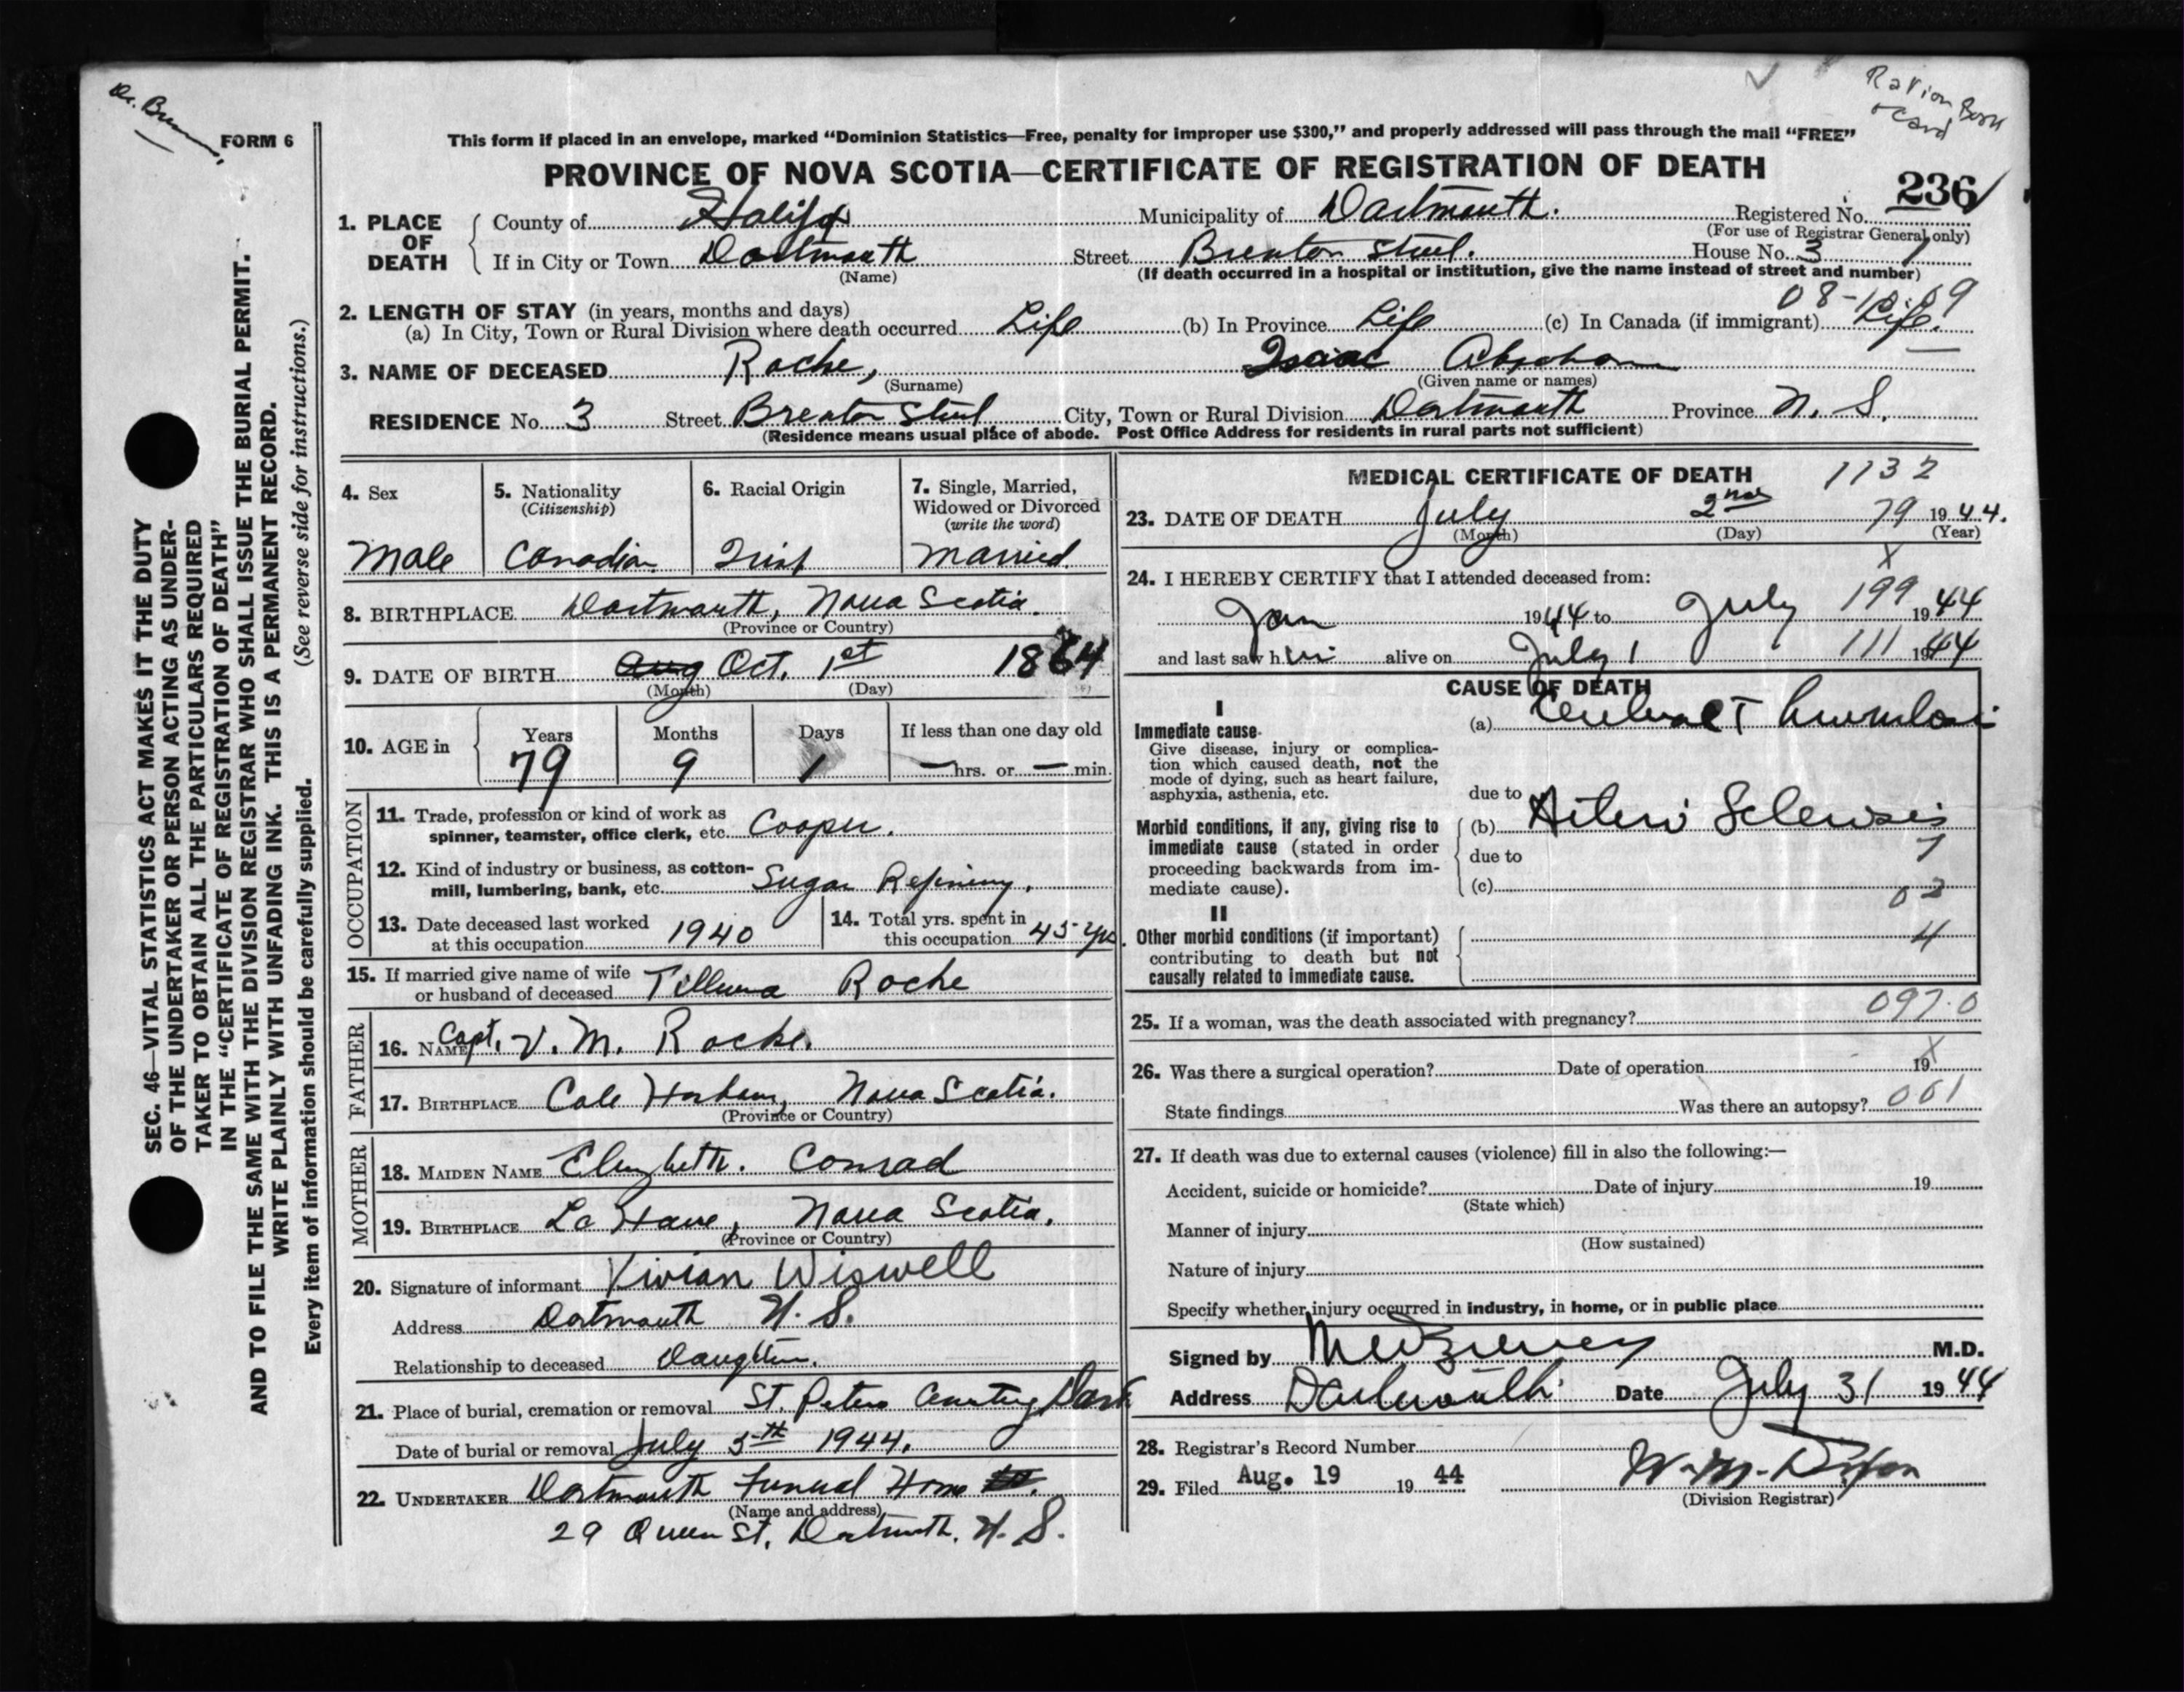 Ration Book
& Card
FORM 6
This form if placed in an envelope, marked “Dominion Statistics—Free, penalty for improper use $300,” and properly addressed will pass through the mail “FREE”
PROVINCE OF NOVA SCOTIA—CERTIFICATE OF REGISTRATION OF DEATH
236
1. PLACE OF DEATH
County of Halifax Municipality of Dartmouth. Registered No.
(For use of Registrar General only)
If in City or Town Dartmouth Street Brenton Street. House No. 3
(Name) (If death occurred in a hospital or institution, give the name instead of street and number)
2. LENGTH OF STAY (in years, months and days)
(a) In City, Town or Rural Division where death occurred Life (b) In Province Life (c) In Canada (if immigrant) Life.
3. NAME OF DECEASED Roche, Isaac Abraham
(Surname) (Given name or names)
RESIDENCE No. 3 Street Brenton Street City, Town or Rural Division Dartmouth Province N. S.
(Residence means usual place of abode. Post Office Address for residents in rural parts not sufficient)
4. Sex
Male
5. Nationality
(Citizenship)
Canadian
6. Racial Origin
Irish
7. Single, Married,
Widowed or Divorced
(write the word)
Married.
8. BIRTHPLACE Dartmouth, Nova Scotia.
(Province or Country)
9. DATE OF BIRTH Aug Oct. 1st 1864
(Month) (Day)
10. AGE in
Years Months Days If less than one day old
79 9 1 — hrs. or — min.
OCCUPATION
11. Trade, profession or kind of work as
spinner, teamster, office clerk, etc. Cooper.
12. Kind of industry or business, as cotton-
mill, lumbering, bank, etc. Sugar Refining.
13. Date deceased last worked
at this occupation 1940
14. Total yrs. spent in
this occupation 45 yrs.
15. If married give name of wife
or husband of deceased Roche
FATHER
16. NAME Capt. V. M. Roche.
17. BIRTHPLACE Cole Harbour, Nova Scotia.
(Province or Country)
MOTHER
18. MAIDEN NAME Elizabeth. Conrad
19. BIRTHPLACE La Have, Nova Scotia.
(Province or Country)
20. Signature of informant Vivian Wiswell
Address Dartmouth N. S.
Relationship to deceased Daughter.
21. Place of burial, cremation or removal St. Peters Cemetery Dart
Date of burial or removal July 5th 1944.
22. UNDERTAKER Dartmouth Funeral Home
(Name and address)
29 Queen St. Dartmouth. N. S.
MEDICAL CERTIFICATE OF DEATH 1132
23. DATE OF DEATH July 2nd 79 1944.
(Month) (Day) (Year)
24. I HEREBY CERTIFY that I attended deceased from:
Jan 1944 to July 199 1944
and last saw him alive on July 1 111 1944
CAUSE OF DEATH
I
Immediate cause
Give disease, injury or complica-
tion which caused death, not the
mode of dying, such as heart failure,
asphyxia, asthenia, etc.
(a) Cerebral Thrombosis
due to
Morbid conditions, if any, giving rise to
immediate cause (stated in order
proceeding backwards from im-
mediate cause).
(b) Arterio Sclerosis
due to 7
(c) 02
II
Other morbid conditions (if important)
contributing to death but not
causally related to immediate cause.
4
097.0
25. If a woman, was the death associated with pregnancy?
26. Was there a surgical operation? Date of operation 19 X
State findings Was there an autopsy? 001
27. If death was due to external causes (violence) fill in also the following:—
Accident, suicide or homicide? Date of injury 19
(State which)
Manner of injury
(How sustained)
Nature of injury
Specify whether injury occurred in industry, in home, or in public place
Signed by M.D.
Address Dartmouth Date July 31 1944
28. Registrar's Record Number
29. Filed Aug. 19 19 44 W. M. Dixon
(Division Registrar)
SEC. 46—VITAL STATISTICS ACT MAKES IT THE DUTY
OF THE UNDERTAKER OR PERSON ACTING AS UNDER-
TAKER TO OBTAIN ALL THE PARTICULARS REQUIRED
IN THE “CERTIFICATE OF REGISTRATION OF DEATH”
AND TO FILE THE SAME WITH THE DIVISION REGISTRAR WHO SHALL ISSUE THE BURIAL PERMIT.
WRITE PLAINLY WITH UNFADING INK. THIS IS A PERMANENT RECORD.
Every item of information should be carefully supplied. (See reverse side for instructions.)